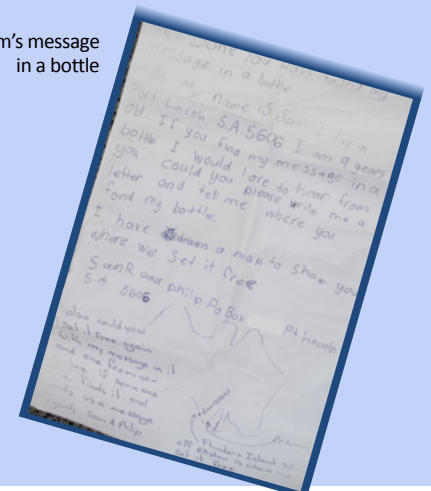 m's message
in a bottle
Done You have found my
message in a bottle
My name is Sam I live in
Port Lincoln S.A. 5606 I am 9 years
old. If you find my message in a
bottle I would love to hear from
you. Could you please write me a
letter and tell me where you
fond my bottle.
I have drawn a map to show you
where we set it free
SamR and philip Po Box Pt Lincoln
S.A 5606
also could you
set it free again
with my message in it
and one from you
see if someone
finds it and
us a message
Sam & Philip
Flinders Island
set it free